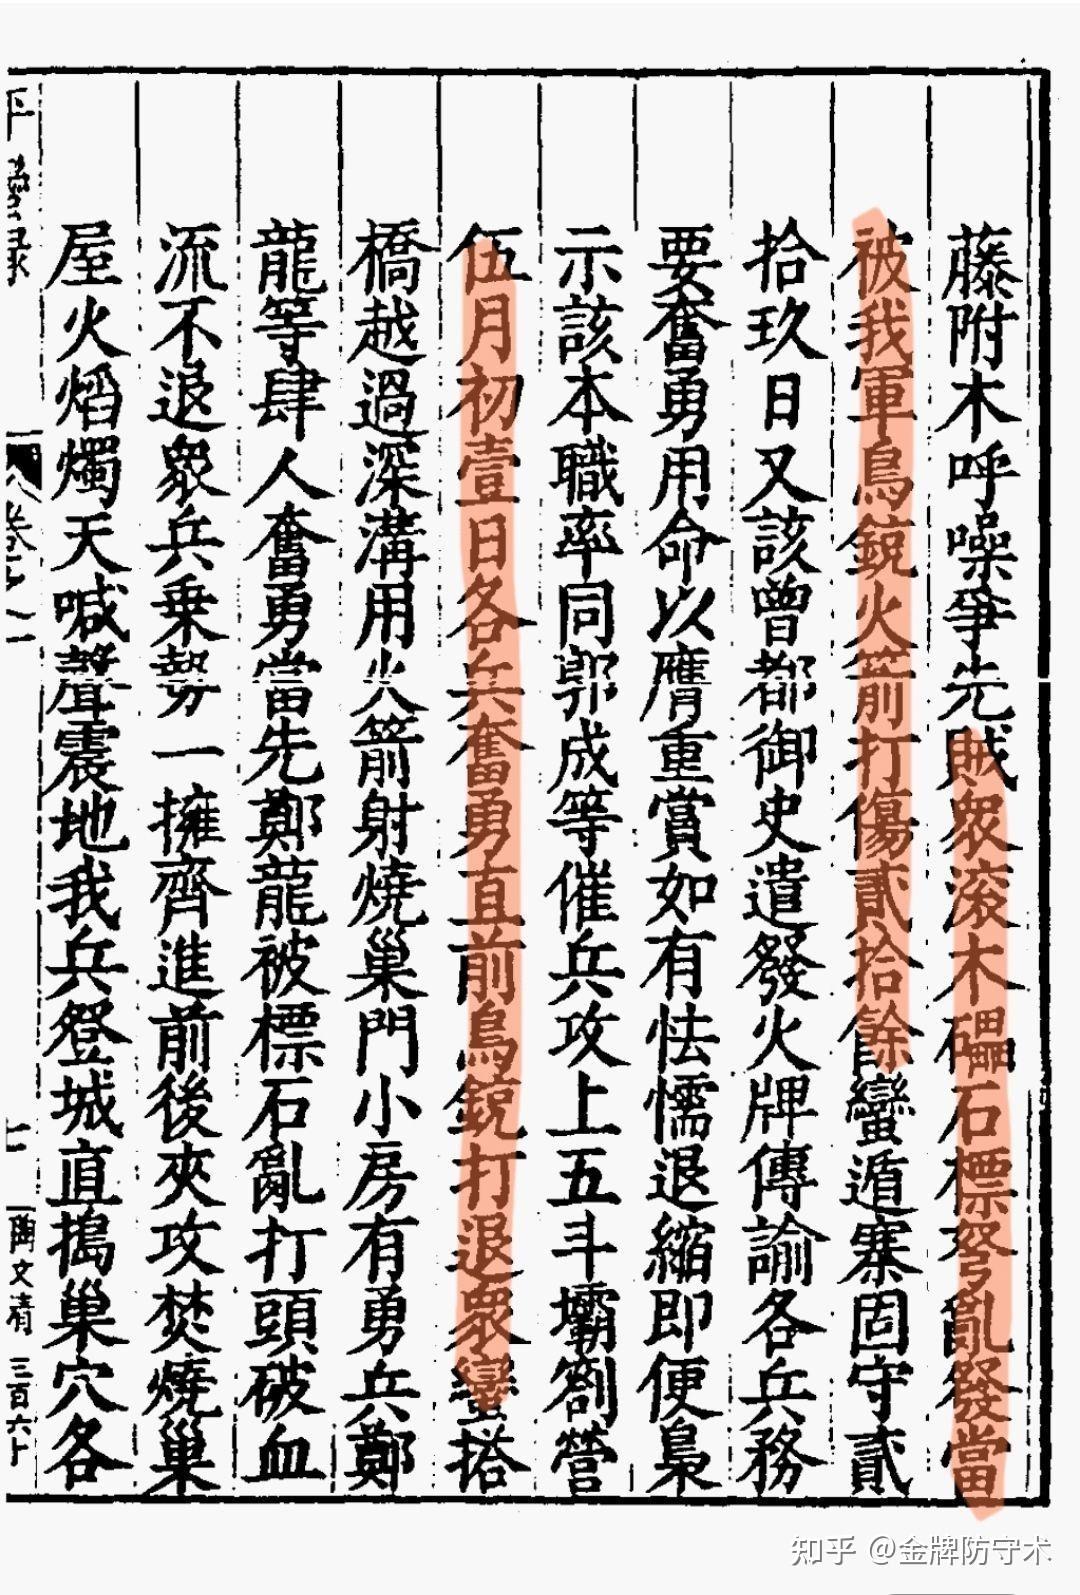 藤附木呼噪爭先賊衆滚木礧石標弩亂發當
被我軍鳥銃火箭打傷貳拾餘蠻遁寨固守貳
拾玖日又該曾都御史遣發火牌傳諭各兵務
要奮勇用命以膺重賞如有怯懦退縮即便梟
示該本職率同郭成等催兵攻上五斗壩劄營
伍月初壹日各兵奮勇直前鳥銃打退衆蠻搭
橋越過深溝用火箭射燒巢門小房有勇兵鄭
龍等肆人奮勇當先鄭龍被標石亂打頭破血
流不退衆兵乗勢一擁齊進前後夾攻焚燒巢
屋火焰燭天喊聲震地我兵登城直搗巢穴各
平蠻録
卷之一
七
陶文清
三百六十
知乎 @金牌防守术